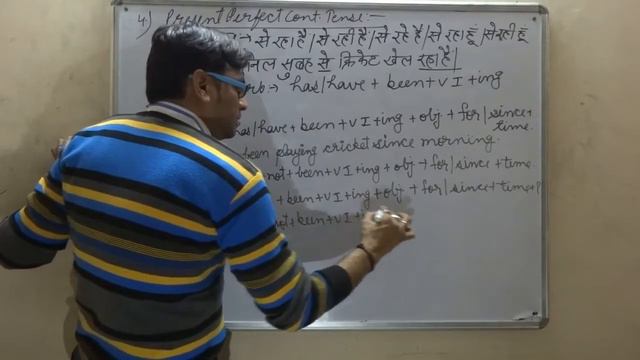 4) Present Perfect Cont. Tense:-
→ से रहा है / से रही है / से रहे हैं / से रहा हूँ / से रही हूँ
सुबह से क्रिकेट खेल रहा है |
:→ has/have + been + V I + ing
has/have + been + V I + ing + obj + for/since +
time.
been playing cricket since morning.
not + been + V I + ing + obj + for/since + time.
+ been + V I + ing + obj + for/since + time + ?
+ been + V I +